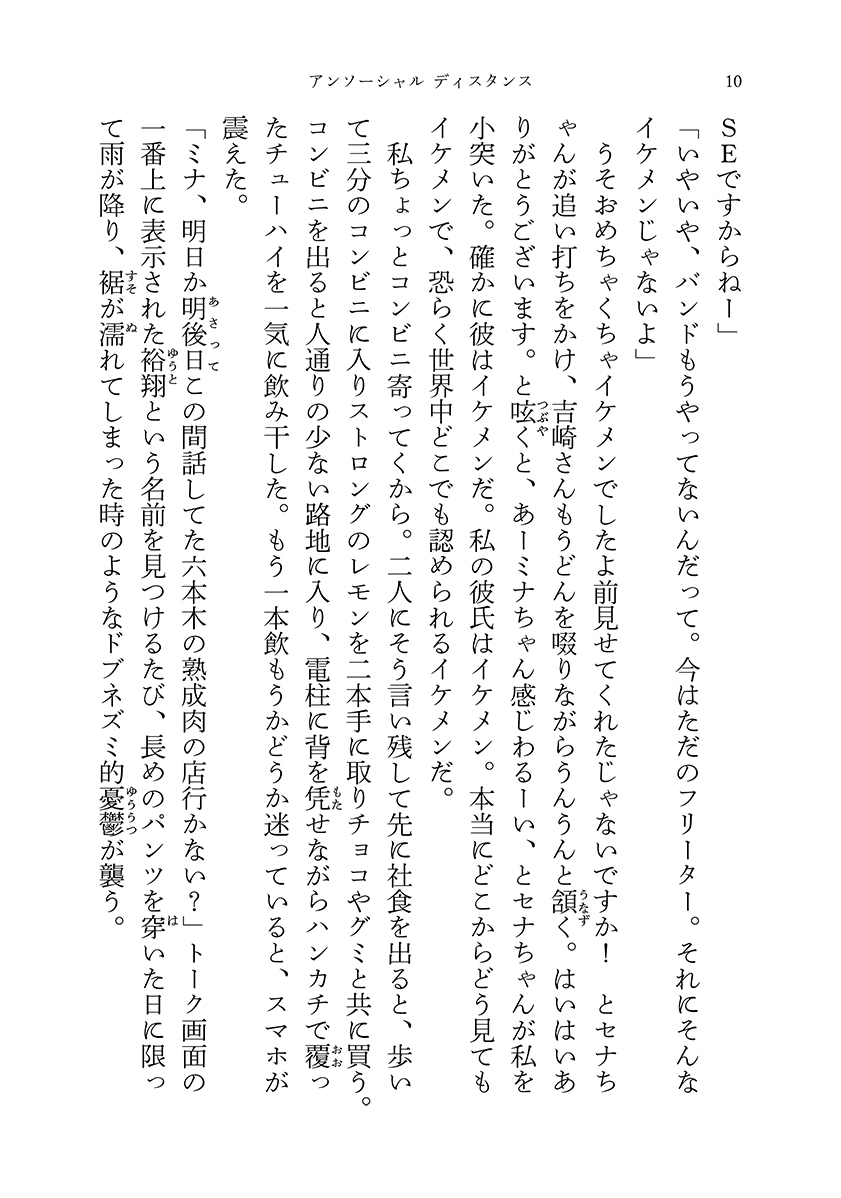 アンソーシャル ディスタンス
10
ＳＥですからねー」
「いやいや、バンドもうやってないんだって。今はただのフリーター。それにそんな
イケメンじゃないよ」
　うそおめちゃくちゃイケメンでしたよ前見せてくれたじゃないですか！　とセナち
ゃんが追い打ちをかけ、吉崎さんもうどんを啜りながらうんうんと頷く。はいはいあ
りがとうございます。と呟くと、あーミナちゃん感じわるーい、とセナちゃんが私を
小突いた。確かに彼はイケメンだ。私の彼氏はイケメン。本当にどこからどう見ても
イケメンで、恐らく世界中どこでも認められるイケメンだ。
　私ちょっとコンビニ寄ってくから。二人にそう言い残して先に社食を出ると、歩い
て三分のコンビニに入りストロングのレモンを二本手に取りチョコやグミと共に買う。
コンビニを出ると人通りの少ない路地に入り、電柱に背を凭せながらハンカチで覆っ
たチューハイを一気に飲み干した。もう一本飲もうかどうか迷っていると、スマホが
震えた。
「ミナ、明日か明後日この間話してた六本木の熟成肉の店行かない？」トーク画面の
一番上に表示された裕翔という名前を見つけるたび、長めのパンツを穿いた日に限っ
て雨が降り、裾が濡れてしまった時のようなドブネズミ的憂鬱が襲う。